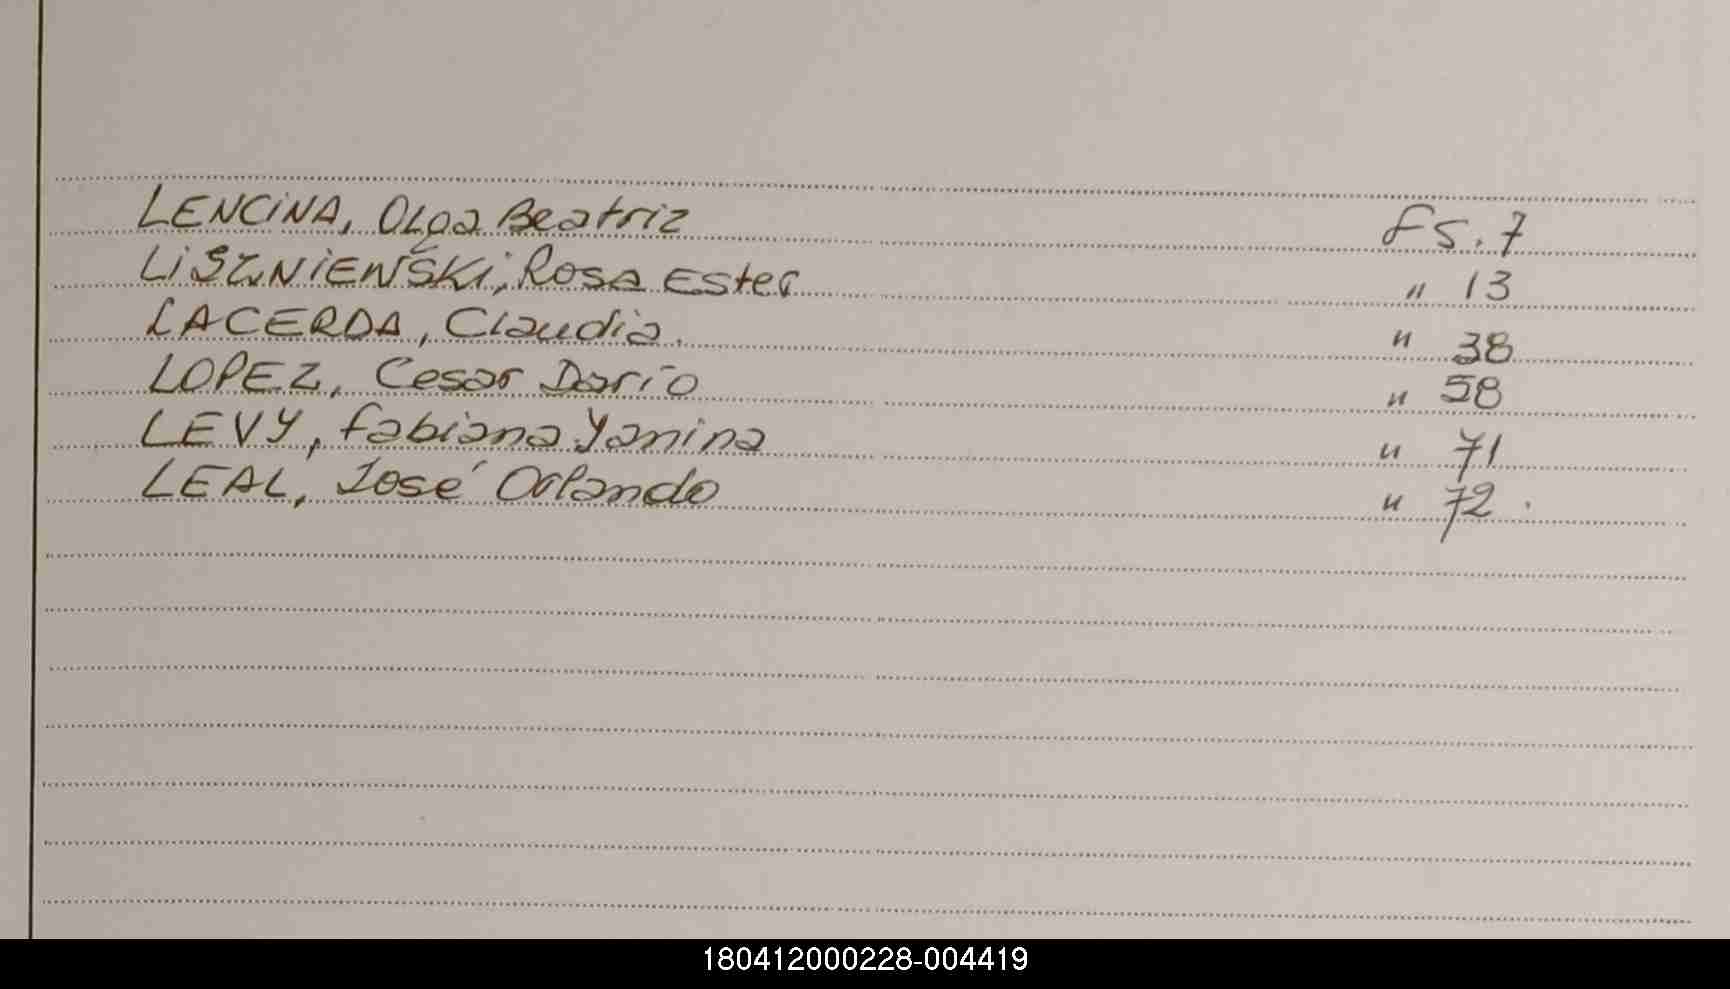 LENCINA, Olga Beatriz fs. 7
LISZNIEWSKI, Rosa Ester " 13
LACERDA, Claudia. " 38
LOPEZ, Cesar Darío " 58
LEVY, fabiana Yanina " 71
LEAL, José Orlando " 72.
180412000228-004419